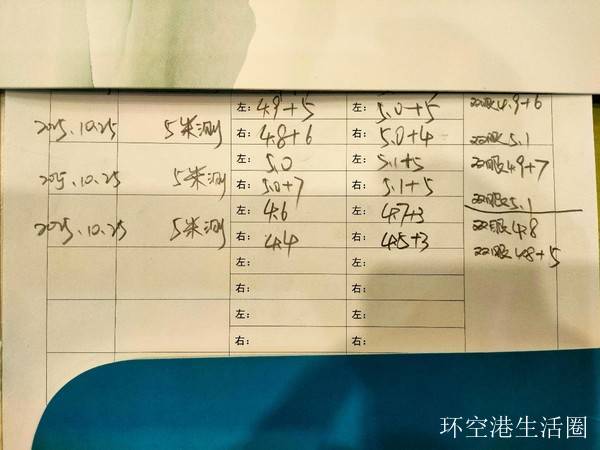 左: 4.9+5 左: 5.0+5 双眼4.9+6
2025.10.25 5米测 右: 4.8+6 右: 5.0+4 双眼5.1
左: 5.0 左: 5.1+5 双眼4.9+7
2025.10.25 5米测 右: 5.0+7 右: 5.1+5 双眼5.1
左: 4.6 左: 4.7+3 双眼4.8
2025.10.25 5米测 右: 4.4 右: 4.5+3 双眼4.8+5
左: 左:
右: 右:
左: 左:
右: 右:
环空港生活圈